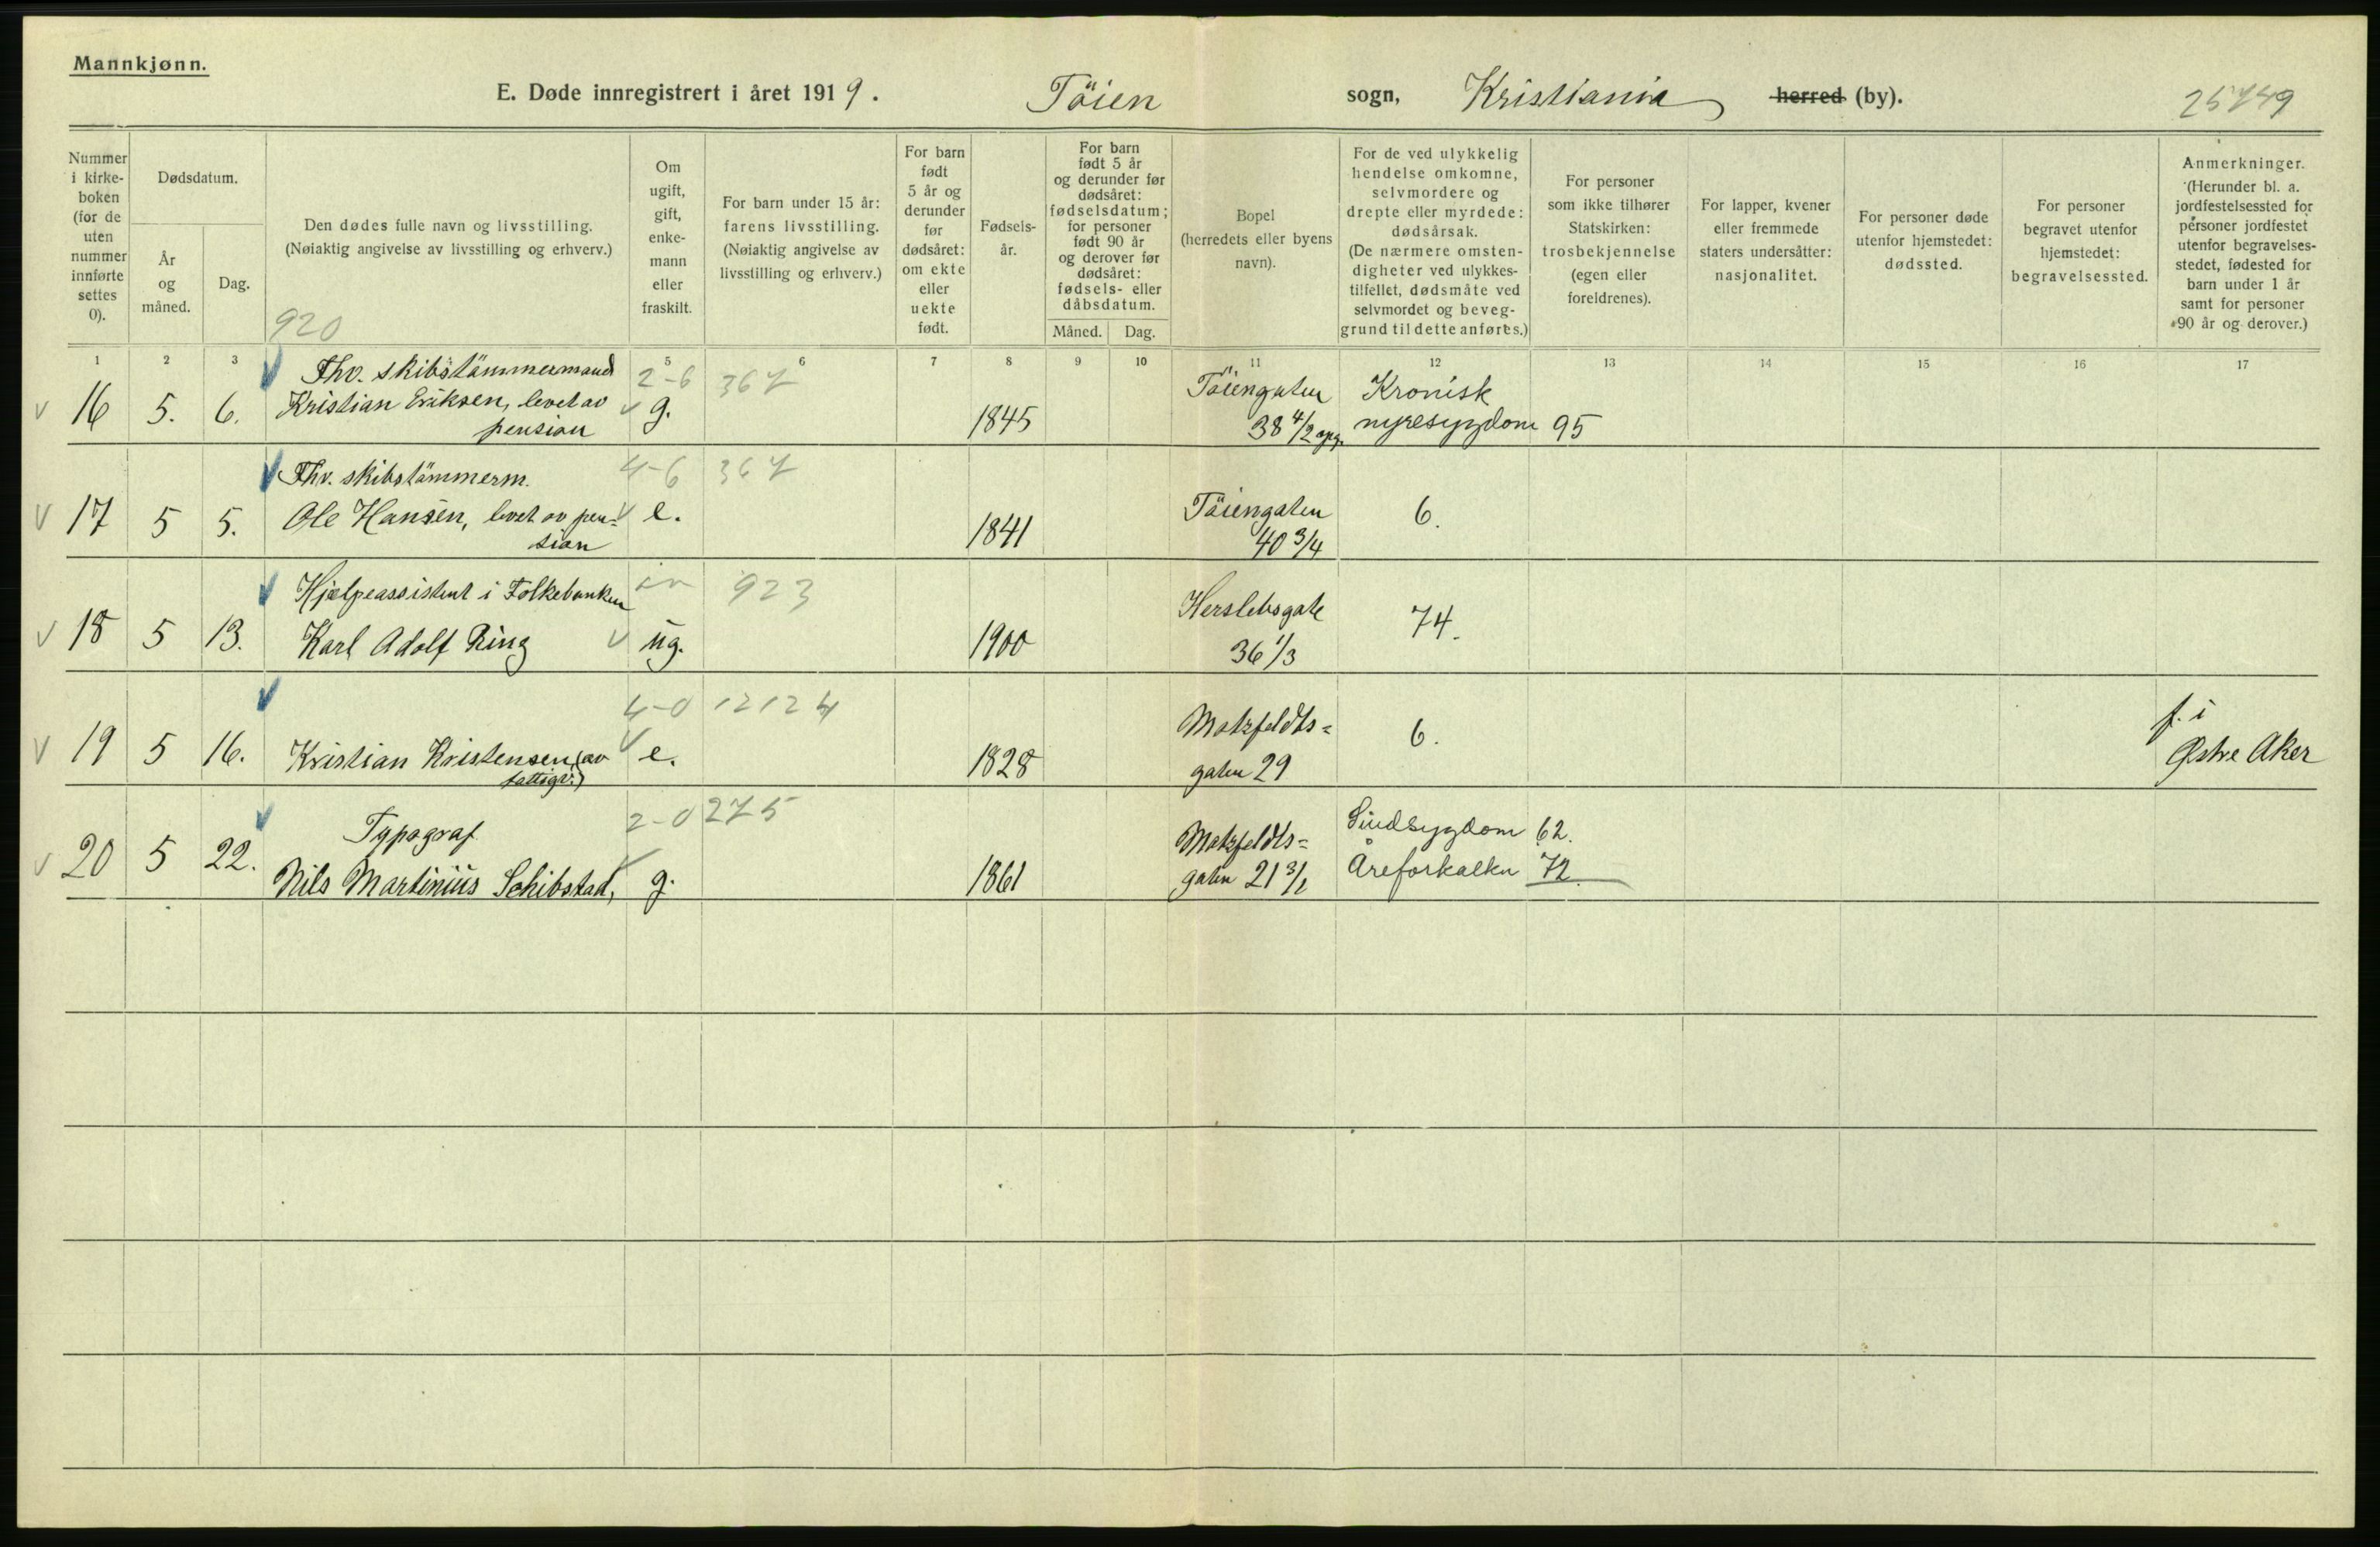 Mannkjønn.
E. Døde innregistrert i året 1919. Töien sogn, Kristiania herred (by). 25749
Nummer i kirke-boken (for de uten nummer innførte settes 0).
Dødsdatum.
År og måned.
Dag.
Den dødes fulle navn og livsstilling.
(Nøiaktig angivelse av livsstilling og erhverv.)
920
Om ugift, gift, enke-mann eller fraskilt.
For barn under 15 år: farens livsstilling.
(Nøiaktig angivelse av livsstilling og erhverv.)
For barn født 5 år og derunder før dødsåret: om ekte eller uekte født.
Fødsels-år.
For barn født 5 år og derunder før dødsåret: fødselsdatum; for personer født 90 år og derover før dødsåret: fødsels- eller dåbsdatum.
Måned. Dag.
Bopel (herredets eller byens navn).
For de ved ulykkelig hendelse omkomne, selvmordere og drepte eller myrdede: dødsårsak.
(De nærmere omsten-digheter ved ulykkes-tilfellet, dødsmåte ved selvmordet og beveg-grund til dette anføres.)
For personer som ikke tilhører Statskirken: trosbekjennelse (egen eller foreldrenes).
For lapper, kvener eller fremmede staters undersåtter: nasjonalitet.
For personer døde utenfor hjemstedet: dødssted.
For personer begravet utenfor hjemstedet: begravelsessted.
Anmerkninger.
(Herunder bl. a. jordfestelsessted for personer jordfestet utenfor begravelses-stedet, fødested for barn under 1 år samt for personer 90 år og derover.)
1 2 3 5 6 7 8 9 10 11 12 13 14 15 16 17
Fhv. skibstämmermand 2-6 367 Töiengaten Kronisk
v 16 5. 6. Kristian Eriksen, levet av v g. 1845 38 4/2 opg. nyresygdom 95
pension
Fhv. skibstämmerm. 4-6 367
v 17 5 5. Ole Hansen, levet av pen= v e. 1841 Töiengaten 6.
sion 40 3/4
Hjælpeassistent i Folkebanken 923 Herslebsgate
v 18 5 13. Karl Adolf Ring v ug. 1900 36 1/3 74.
4-0 12124 Motzfeldts= f. i
v 19 5 16. Kristian Kristensen (av v e. 1828 gaten 29 6. Østre Aker
fattigv.)
Typograf 2-0 275 Motzfeldts= Sindsygdom 62.
v 20 5 22. Nils Martinius Schibstad, g. 1861 gaten 21 3/1 Åreforkalkn 72.